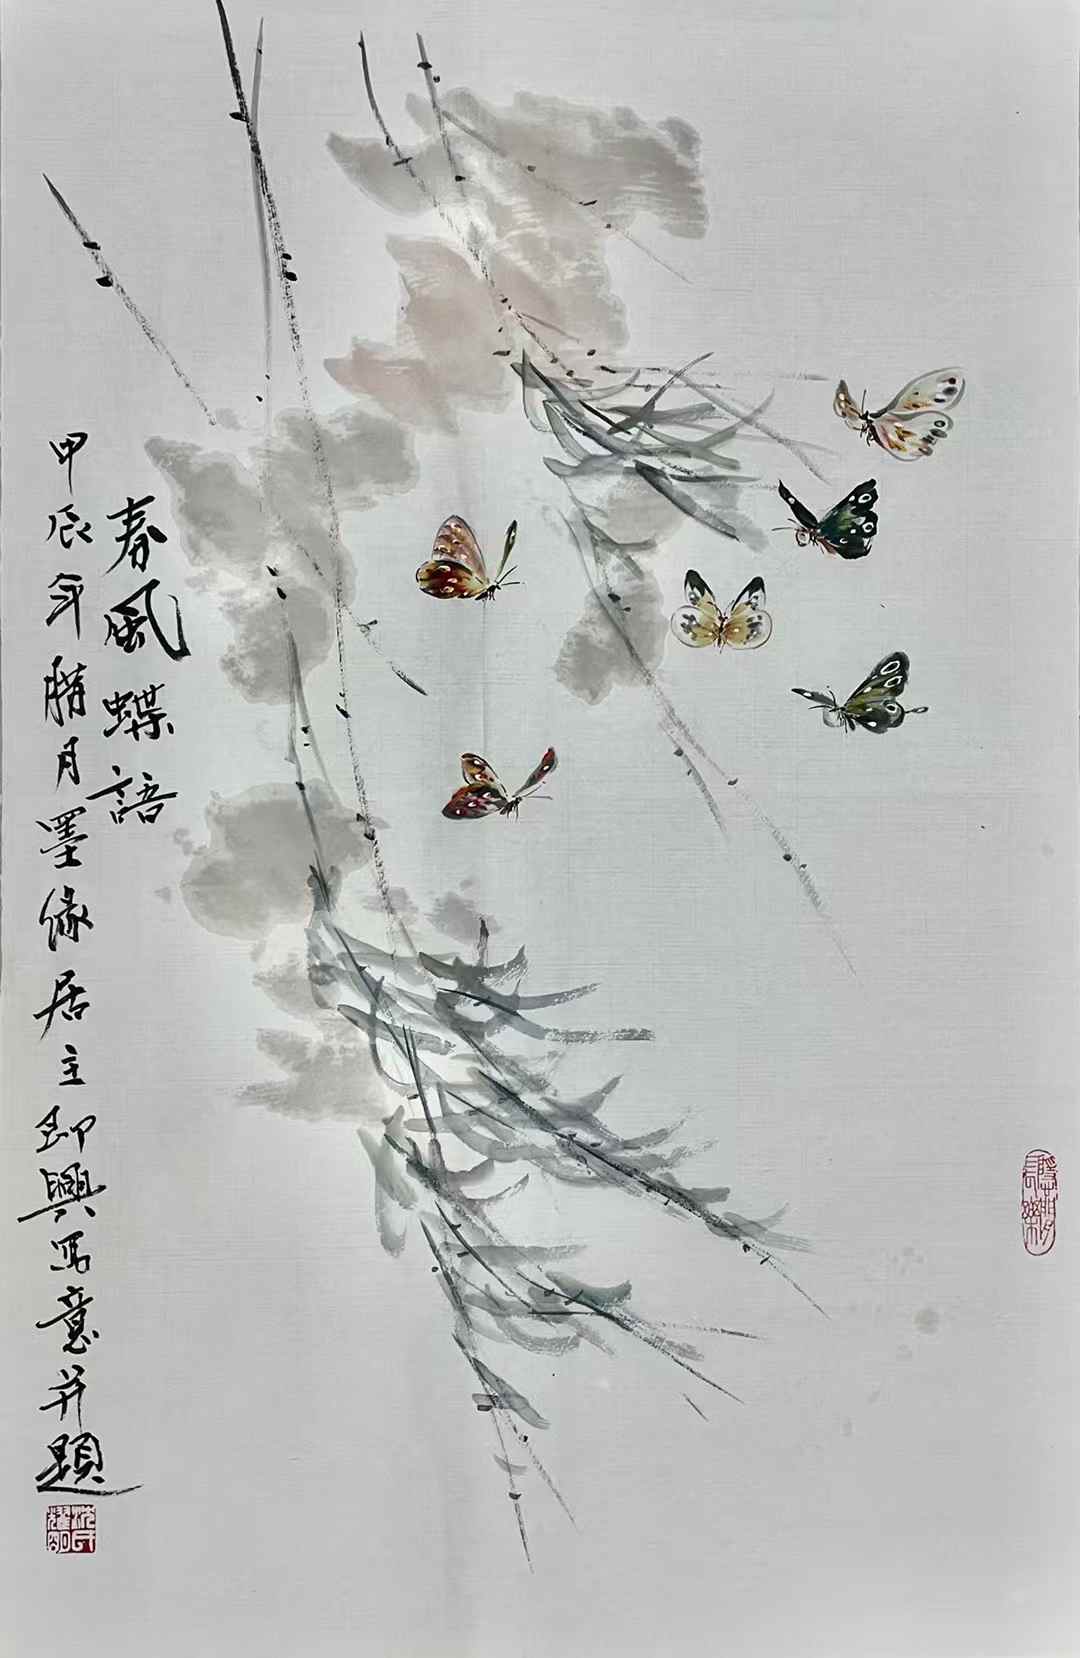 春風蝶語
甲辰年腊月墨缘居主即興写意并題
沈氏